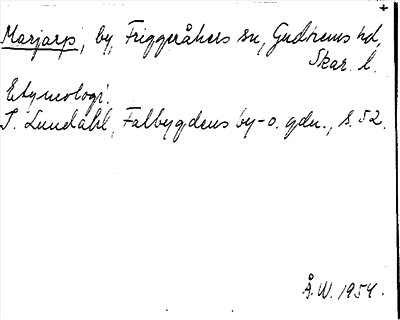 Marjarp, by, Friggeråkers sn, Gudhems hd,
Skar. l.
Etymologi.
I. Lundahl, Falbygdens by- o. gdn., s. 52.
Å.W. 1954.